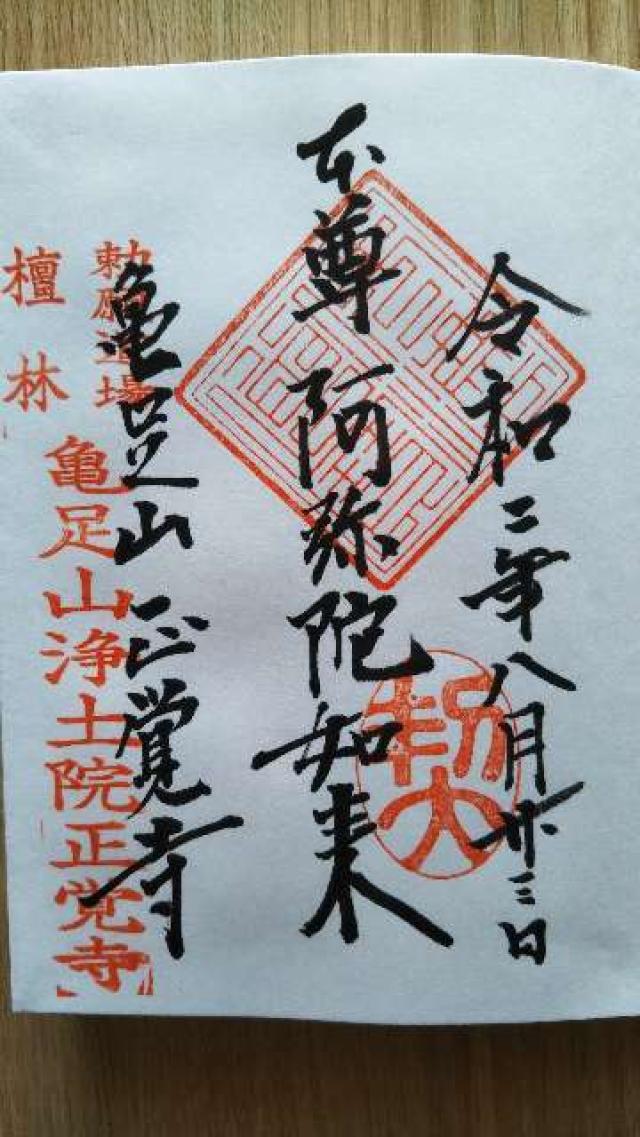 令和二年八月廿三日
本尊 阿弥陀如来
亀足山 正覚寺
勅願道場
檀林
亀足山浄土院正覚寺